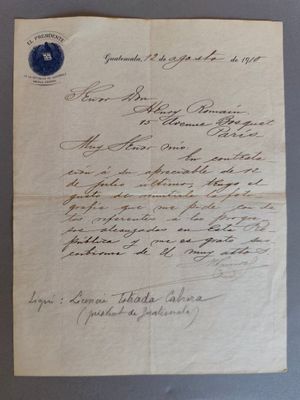 EL PRESIDENTE
DE LA REPÚBLICA DE GUATEMALA
AMÉRICA CENTRAL
Guatemala, 12 de agosto de 1910
Señor Don
Henry Romain,
15 Avenue Bosquet
París
Muy Señor mío:
En contesta
ción á su apreciable de 12
de julio último, tengo el
gusto de
que me pide con da
tos referentes á los progre
sos alcanzados en esta Re
pública y me es grato sus
cribirme de U. muy atto. S.
Signé : Licencié Estrada Cabrera
(président de Guatemala)